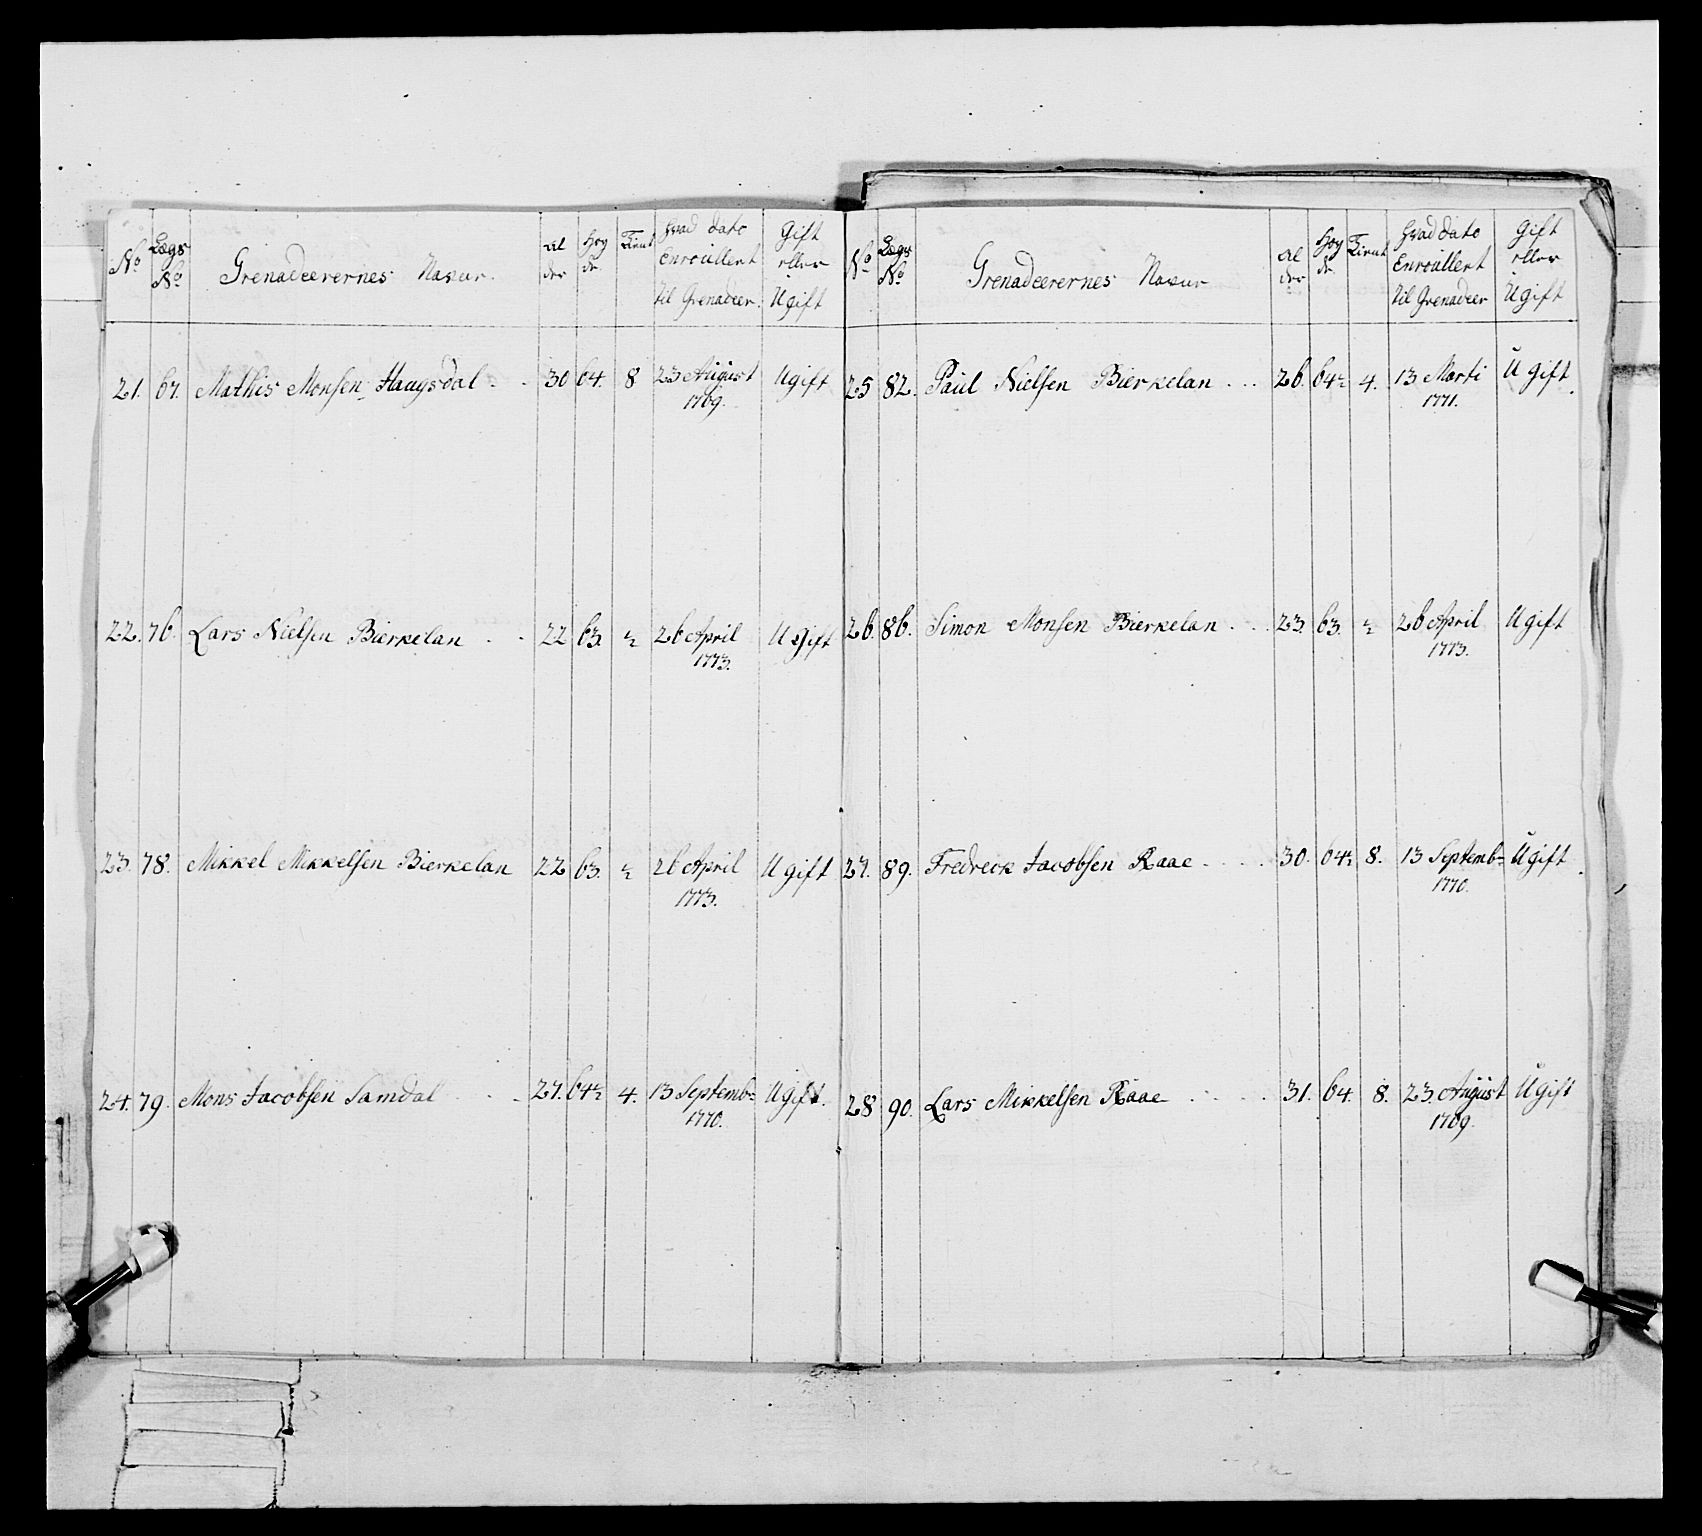 No Lægs No Grenadeerernes Navne. Al der Høy de Tient Hvad dato Enroullert til Grenadeer. Gift eller Ugift
21. 67. Mathis Monsen Haugsdal - - 30 64. 8 23 August 1769. Ugift
22. 76. Lars Nielsen Bierkelan - - 22 63. 26 April 1773. Ugift
23. 78. Mikkel Mikkelsen Bierkelan 22 63. 26 April 1773. Ugift
24. 79. Mons Jacobsen Samdal - - - 27. 64½ 4. 13 Septembr 1770. Ugift.
No Lægs No Grenadeerernes Navne Al der Høy de Tient Hvad dato Enroullert til Grenadeer Gift eller Ugift
25 82. Paul Nielsen Bierkelan . . . 26. 64½ 4. 13 Marti 1771. Ugift.
26. 86. Simon Monsen Bierkelan . . . 23. 63. 26 April 1773. Ugift
27. 89. Fredreck Jacobsen Raae - - - 30. 64½ 8. 13 Septembr 1770. Ugift
28 90. Lars Mikkelsen Raae - - - 31. 64. 8. 23. August 1769. Ugift